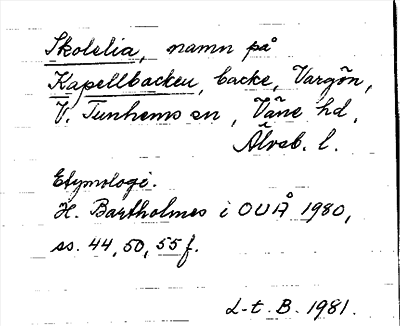 Skolelia, namn på
Kapellbacken, backe, Vargön,
V. Tunhems sn, Väne hd,
Älvsb. l.
Etymologi.
H. Bartholmes i OUÅ 1980,
ss. 44, 50, 55 f.
L-t. B. 1981.